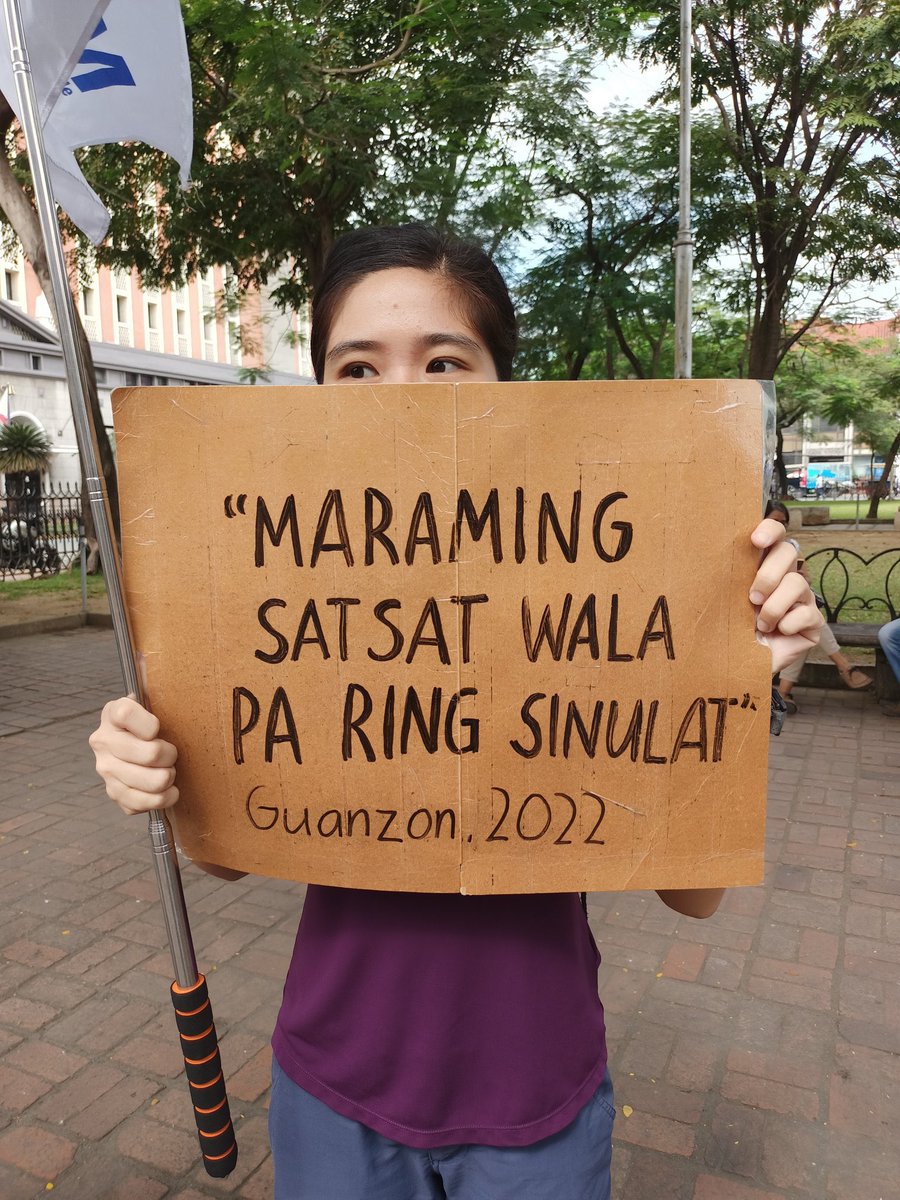 M
e
"MARAMING
SATSAT WALA
PA RING SINULAT"
Guanzon, 2022